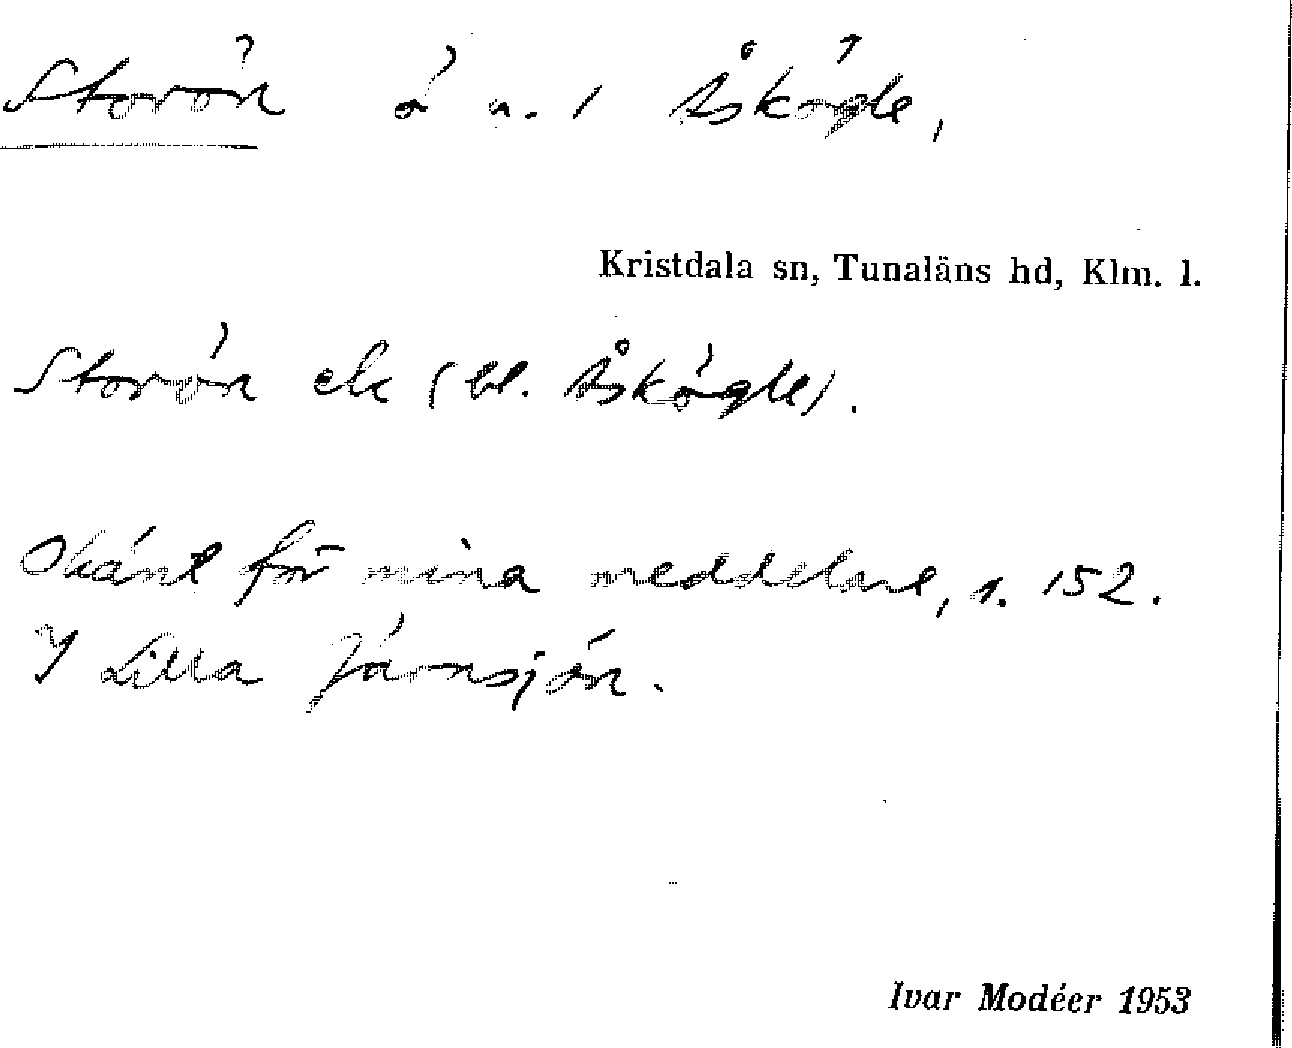 Storön ö n. i Åskögle,
Kristdala sn, Tunaläns hd, Klm. l.
Storön ek (bl. Åskögle).
Okänt för mina meddelare, s. 152.
I Lilla Järnsjön.
Ivar Modéer 1953